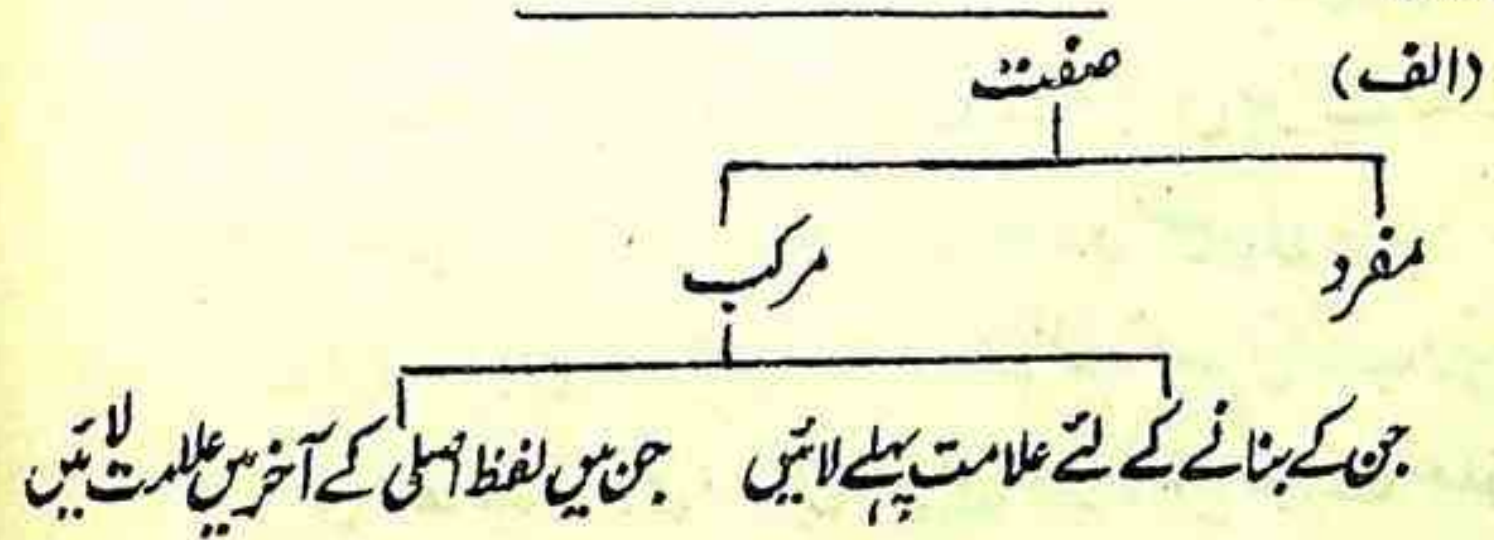 (الف) صفت
مفرد مرکب
جن کے بنانے کے لئے علامت پہلے لائیں جن میں لفظ اصلی کے آخر میں علامت لائیں